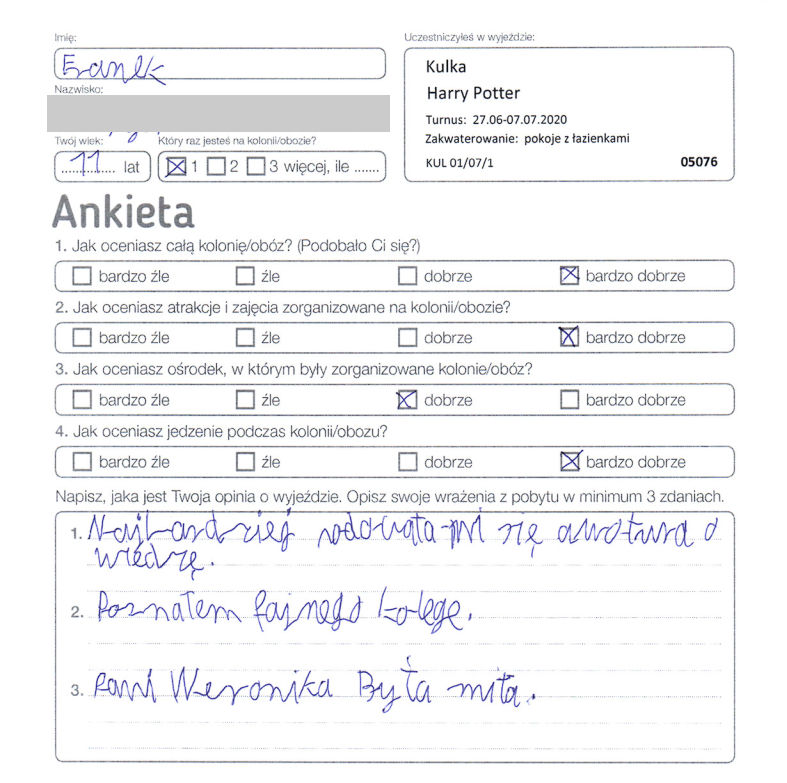 Imię:
Franek
Nazwisko:
Twój wiek: Który raz jesteś na kolonii/obozie?
11 lat 1 2 3 więcej, ile .......
Uczestniczyłeś w wyjeździe:
Kulka
Harry Potter
Turnus: 27.06-07.07.2020
Zakwaterowanie: pokoje z łazienkami
KUL 01/07/1 05076
Ankieta
1. Jak oceniasz całą kolonię/obóz? (Podobało Ci się?)
bardzo źle źle dobrze bardzo dobrze
2. Jak oceniasz atrakcje i zajęcia zorganizowane na kolonii/obozie?
bardzo źle źle dobrze bardzo dobrze
3. Jak oceniasz ośrodek, w którym były zorganizowane kolonie/obóz?
bardzo źle źle dobrze bardzo dobrze
4. Jak oceniasz jedzenie podczas kolonii/obozu?
bardzo źle źle dobrze bardzo dobrze
Napisz, jaka jest Twoja opinia o wyjeździe. Opisz swoje wrażenia z pobytu w minimum 3 zdaniach.
1. Najbardziej podobała mi się o
wiedzę.
2. Poznałem fajnego kolegę.
3. Pani Weronika Była miła.